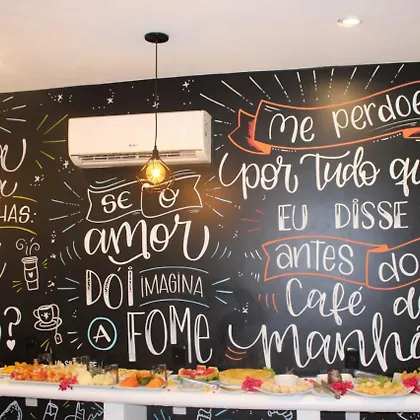 HAS.
?
SE O
amor
DÓI IMAGINA
A FOME
me perdoe
por tudo qu
EU DISSE
antes do
Café d
manhã